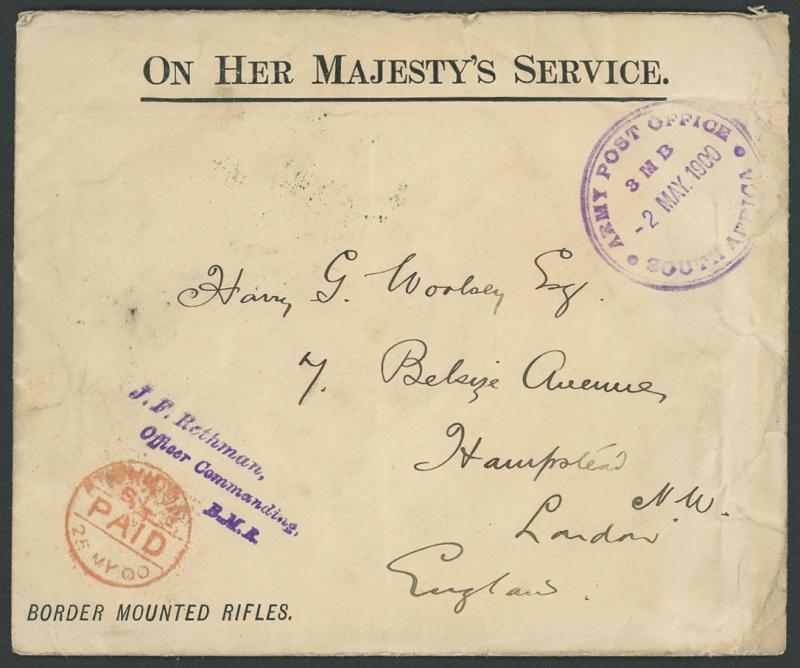 ON HER MAJESTY'S SERVICE.
ARMY POST OFFICE
3 M B
-2 MAY. 1900
SOUTH AFRICA
Harry G. Woolsey Esq.
7. Belsize Avenue,
Hampstead
N.W.
London
England.
J. F. Rethman,
Officer Commanding,
B.M.R.
PAID
25 MY 00
BORDER MOUNTED RIFLES.